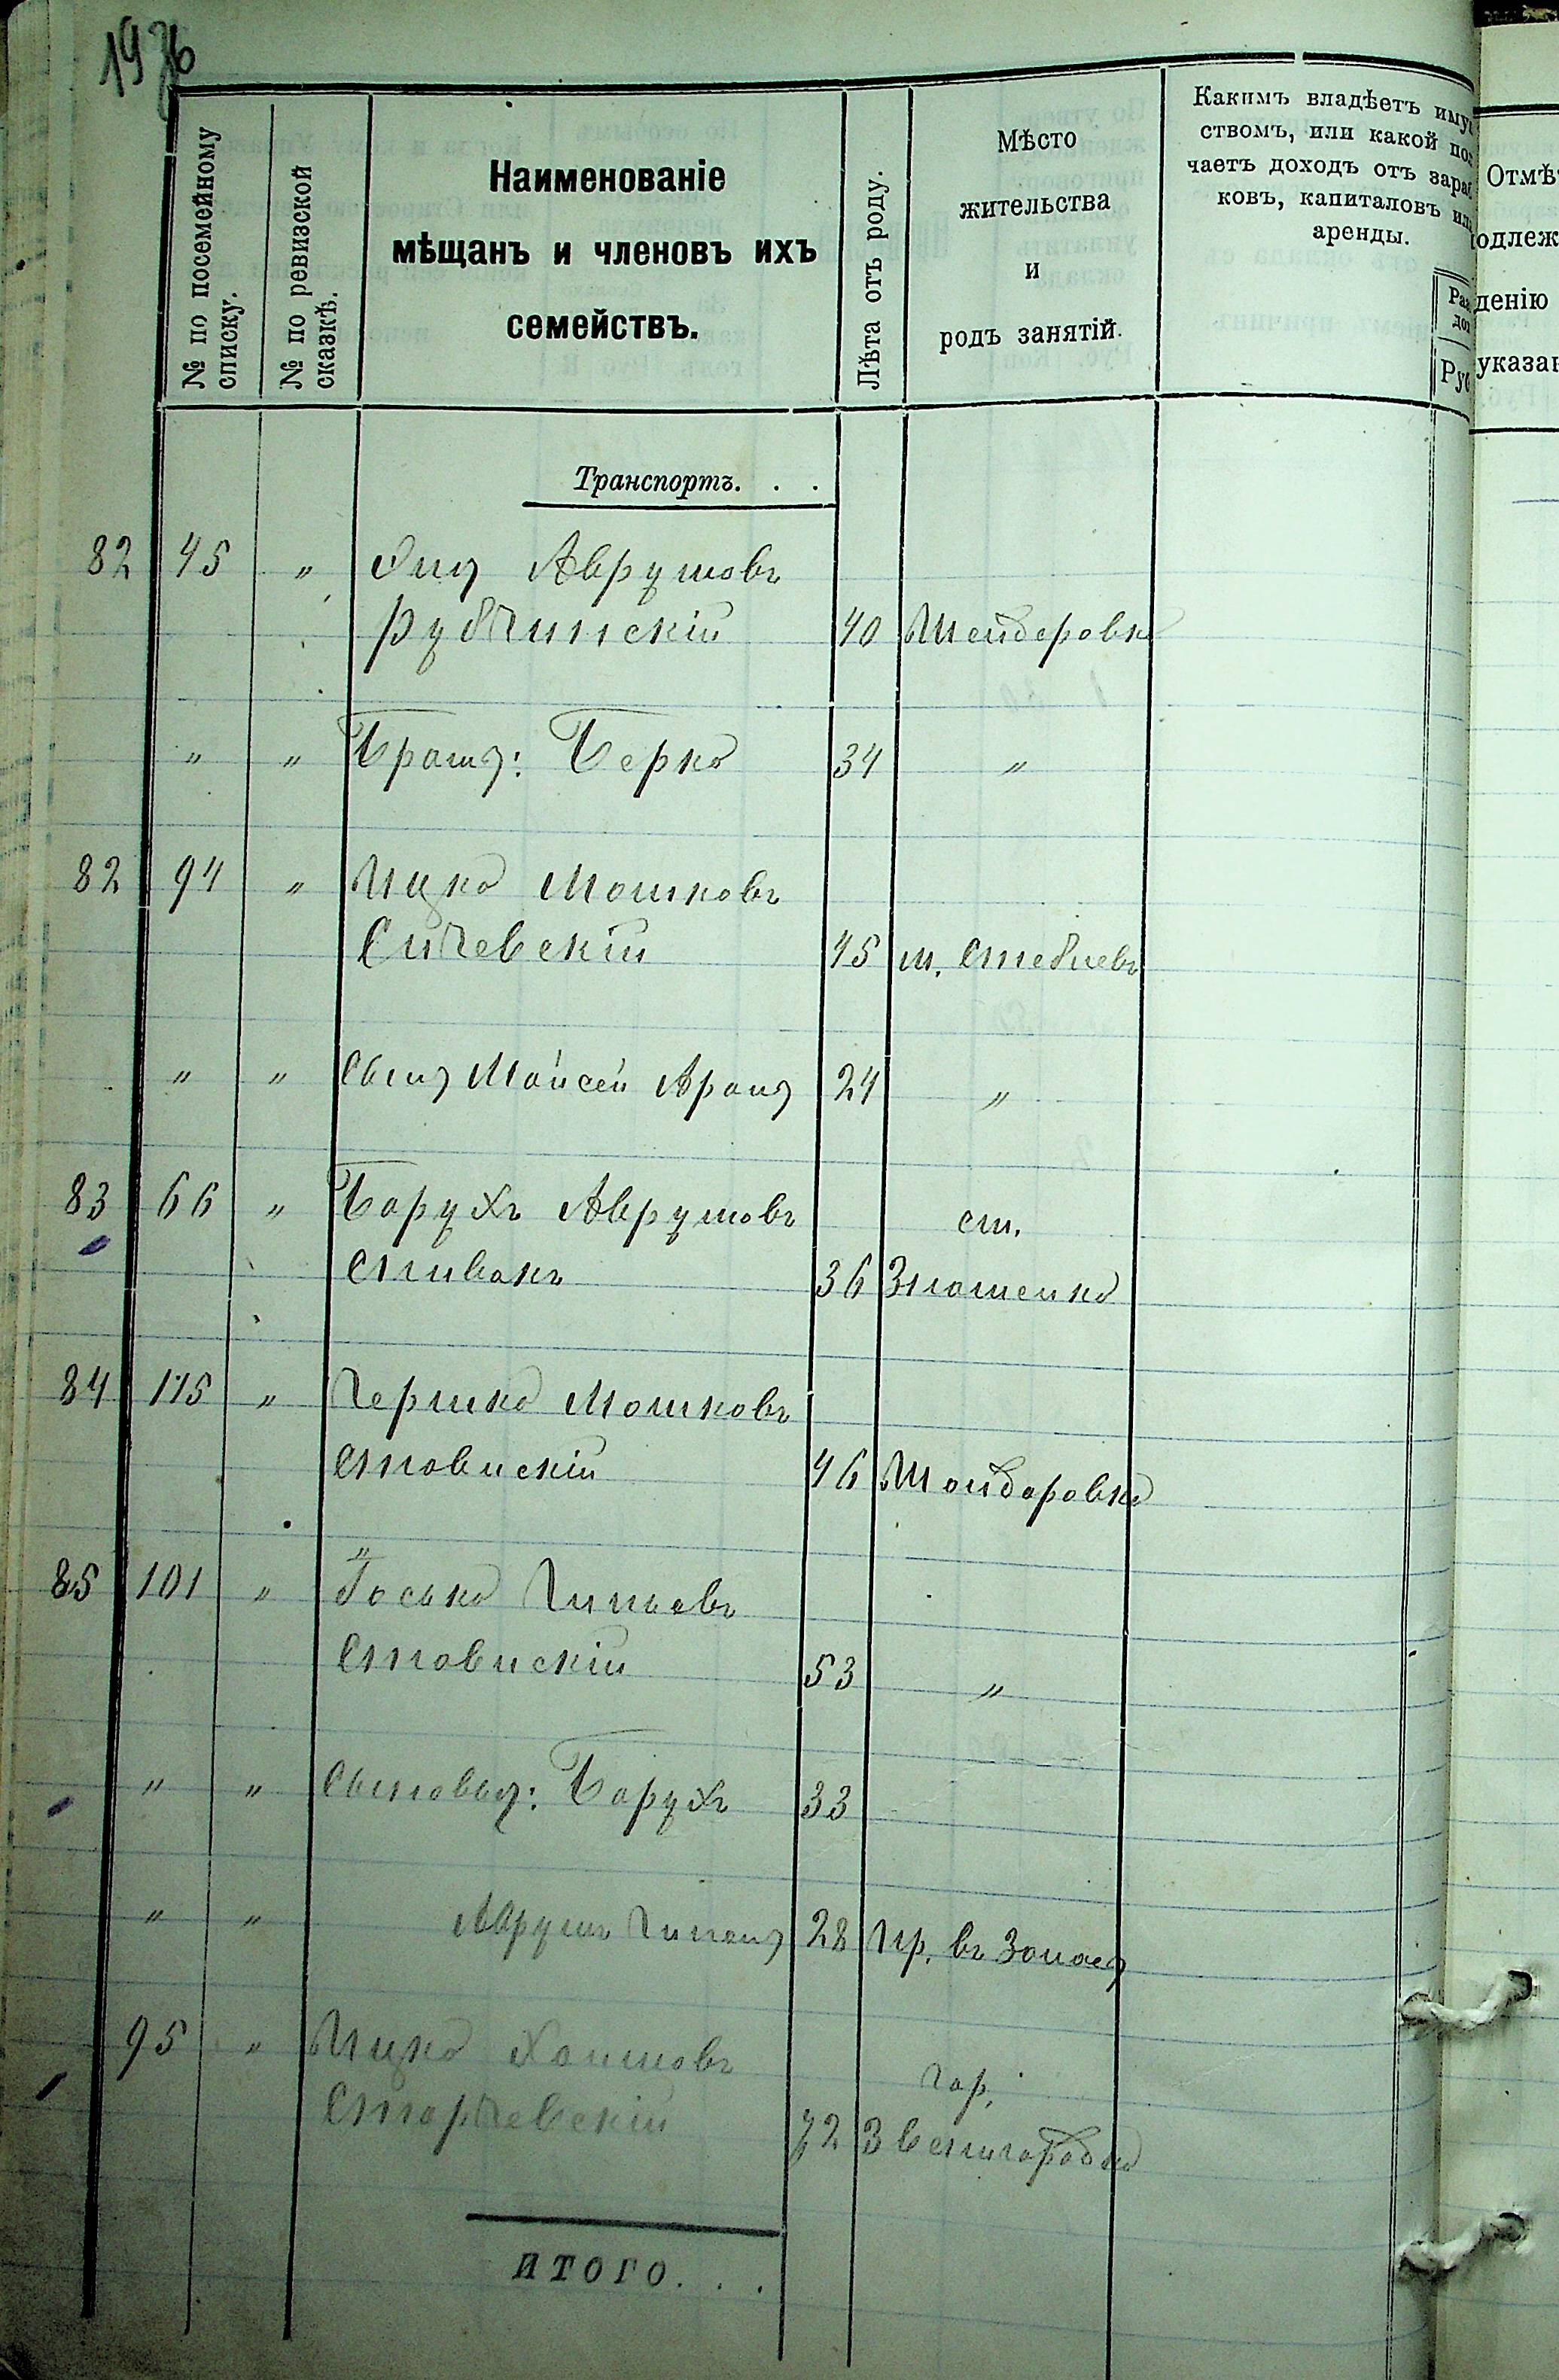 № по посемейному
списку.
№ по ревизской
сказкѣ.
Наименованіе
мѣщанъ и членовъ ихъ
семействъ.
Лѣта отъ роду.
Мѣсто
жительства
и
родъ занятій.
Какимъ владѣетъ имущ
ствомъ, или какой пол
чаетъ доходъ отъ зараб
ковъ, капиталовъ или
аренды.
Рус
Отмѣт
одлеж
денію
указан
Транспортъ. . .
82 45 " Авруммовъ
Рубчинскій 40 Шендеровка
" " Братъ: Берко 34 "
82 94 " Ицко Мошковъ
Сичевскій 45 м. Стеблевъ
" " Сынъ Мойсей Аронъ 24 "
83 66 " Барухъ Аврумовъ ст.
Спивакъ 36 Знаменка
84 115 " Гершко Мошковъ
Становискій 46 Шандаровка
85 101 " Іосько
Становискій 53 "
" " Сыновья: Барухъ 33
" " Аврумъ 28 пр. въ Запасъ
95 " Ицко Хаимовъ гор.
Старчевскій 72 Звенигородка
ИТОГО. . .